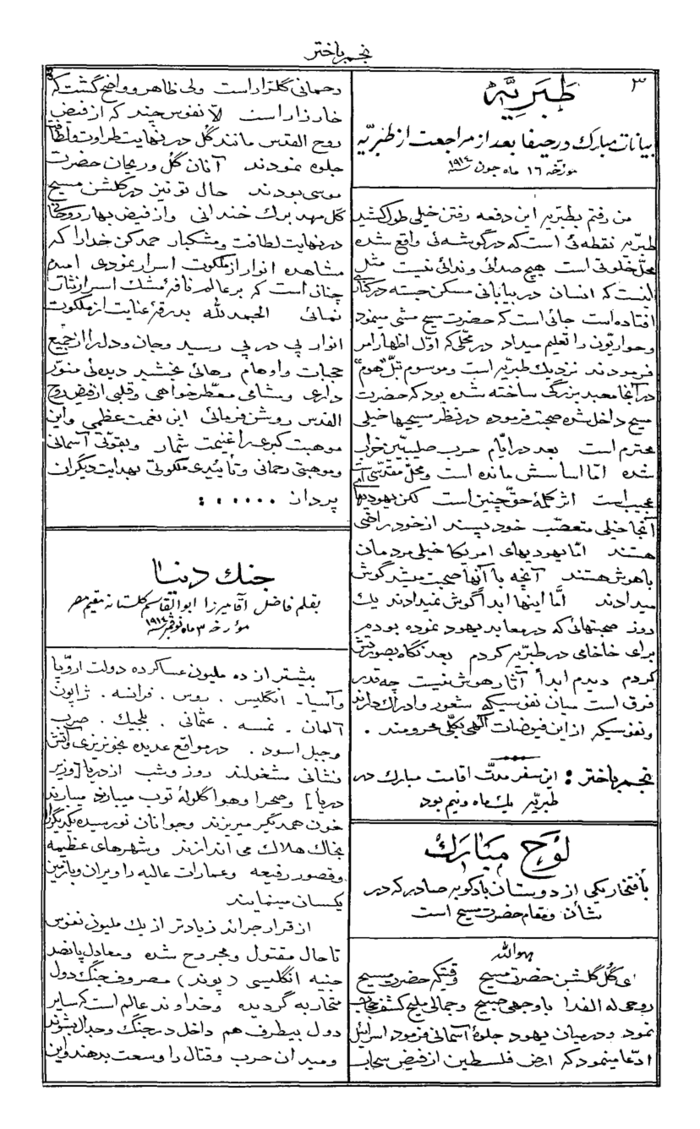 نجم باختر
٣
طبریّه
بیانات مبارک در حیفا بعد از مراجعت از طبریّه
مورّخه ١٦ ماه جون سنه ١٩١٤
من رفتم بطبریه این دفعه رفتن خیلی طول کشید
طبریّه نقطه‌ئی است که در گوشه‌ئی واقع شده
محلّ خلوتی است هیچ صدائی و ندائی نیست مثل
اینست که انسان در بیابانی مسکن جسته در کناری
افتاده است جائی است که حضرت مسیح مشی مینمود
و حواریّون را تعلیم میداد در محلّی که اوّل اظهار امر
فرمودند نزدیک طبریّه است و موسوم بتلّ هوم
در آنجا معبد بزرگی ساخته شده بود که حضرت
مسیح داخل شده صحبت فرموده در نظر مسیحیها خیلی
محترم است بعد در ایّام حرب صلیبیّین خراب
شده امّا اساسش مانده است و محلّ مقدّسی است
عجیب است اثر کلمهٔ حقّ چنین است لکن یهودیهای
آنجا خیلی متعصّب خود پسند از خود راضی
هستند امّا یهودیهای امریکا خیلی مردمان
باهوش هستند آنچه با آنها صحبت میشد گوش
میدادند امّا اینها ابداً گوش نمیدادند یک
روز صحبتهائی که در معابد یهود نموده بودم
برای خاخامی در طبریّه کردم بعد نگاه بصورتش
کردم دیدم ابداً آثار هوش نیست چه قدر
فرق است میان نفوسیکه شعور و ادراک دارند
و نفوسیکه از این فیوضات الهی بکلّی محرومند .
نجم باختر : این سفر مدّت اقامت مبارک در
طبریّه یکماه و نیم بود
لوح مبارک
بافتخار یکی از دوستان بادکوبه صادر که در
شأن و مقام حضرت مسیح است
هواللّه
ای گل گلشن حضرت مسیح وقتیکه حضرت مسیح
روحی له الفدا با وجهی صبیح و جمالی ملیح کشف حجاب
نمود و در میان یهود جلوهٔ آسمانی فرمود اسرائیل
ادّعا مینمود که ارض فلسطین از فیض سحاب
رحمانی گلزار است ولی ظاهر و واضح گشت که
خارزار است الّا نفوس چند که از فیض
روح القدس مانند گل در نهایت طراوت و لطافت
جلوه نمودند آنان گل و ریحان حضرت
موسی بودند حال تو نیز در گلشن مسیح
گل صد برگ خندانی و از فیض بهار روحانی
در نهایت لطافت و مشکبار حمد کن خدا را که
مشاهده انوار از ملکوت اسرار نمودی امیدم
چنان است که بر عالم نافهٔ مشک اسرار نثار
نمائی الحمد للّه بدرقهٔ عنایت از ملکوت
انوار پی در پی رسید و جان و دل را از جمیع
حجبات و اوهام رهائی بخشید دیده‌ئی منوّر
داری و مشامی معطّر خواهی و قلبی از فیض روح
القدس روشن فرمائی این نعمت عظمی و این
موهبت کبری را غنیمت شمار و بقوّتی آسمانی
و موهبتی رحمانی و تأییدی ملکوتی بهدایت دیگران
پرداز
جنگ دنیا
بقلم فاضل آقا میرزا ابوالقاسم گلستانه مقیم مصر
مورخه ٣ ماه نوڤمبر سنه ١٩١٤
بیشتر از ده ملیون عساکر ده دولت اروپا
و آسیا . انگلیس . روس . فرانسه . ژاپون
آلمان . نمسه . عثمانی . بلجیک . صرب
و جبل اسود . در مواقع عدیده بخونریزی و آتش
فشانی مشغولند روز و شب از دریا [ و زیر
دریا ] و صحرا و هوا گلولهٔ توپ میبازند میبارند
خون همدیگر میریزند و جوانان نورسیده یکدیگر را
بخاک هلاک می اندازند و شهرهای عظیمه
و قصور رفیعه و عمارات عالیه را ویران و با زمین
یکسان مینمایند
از قرار جرائد زیادتر از یک ملیون نفوس
تا حال مقتول و مجروح شده و معادل پانصد
جنیه انگلیسی ( پوند ) مصروف جنگ دول
متحاربه گردیده و خداوند عالم است که سایر
دول بیطرف هم داخل در جنگ و جدال بشوند
و میدان حرب و قتال را وسعت بدهند و این